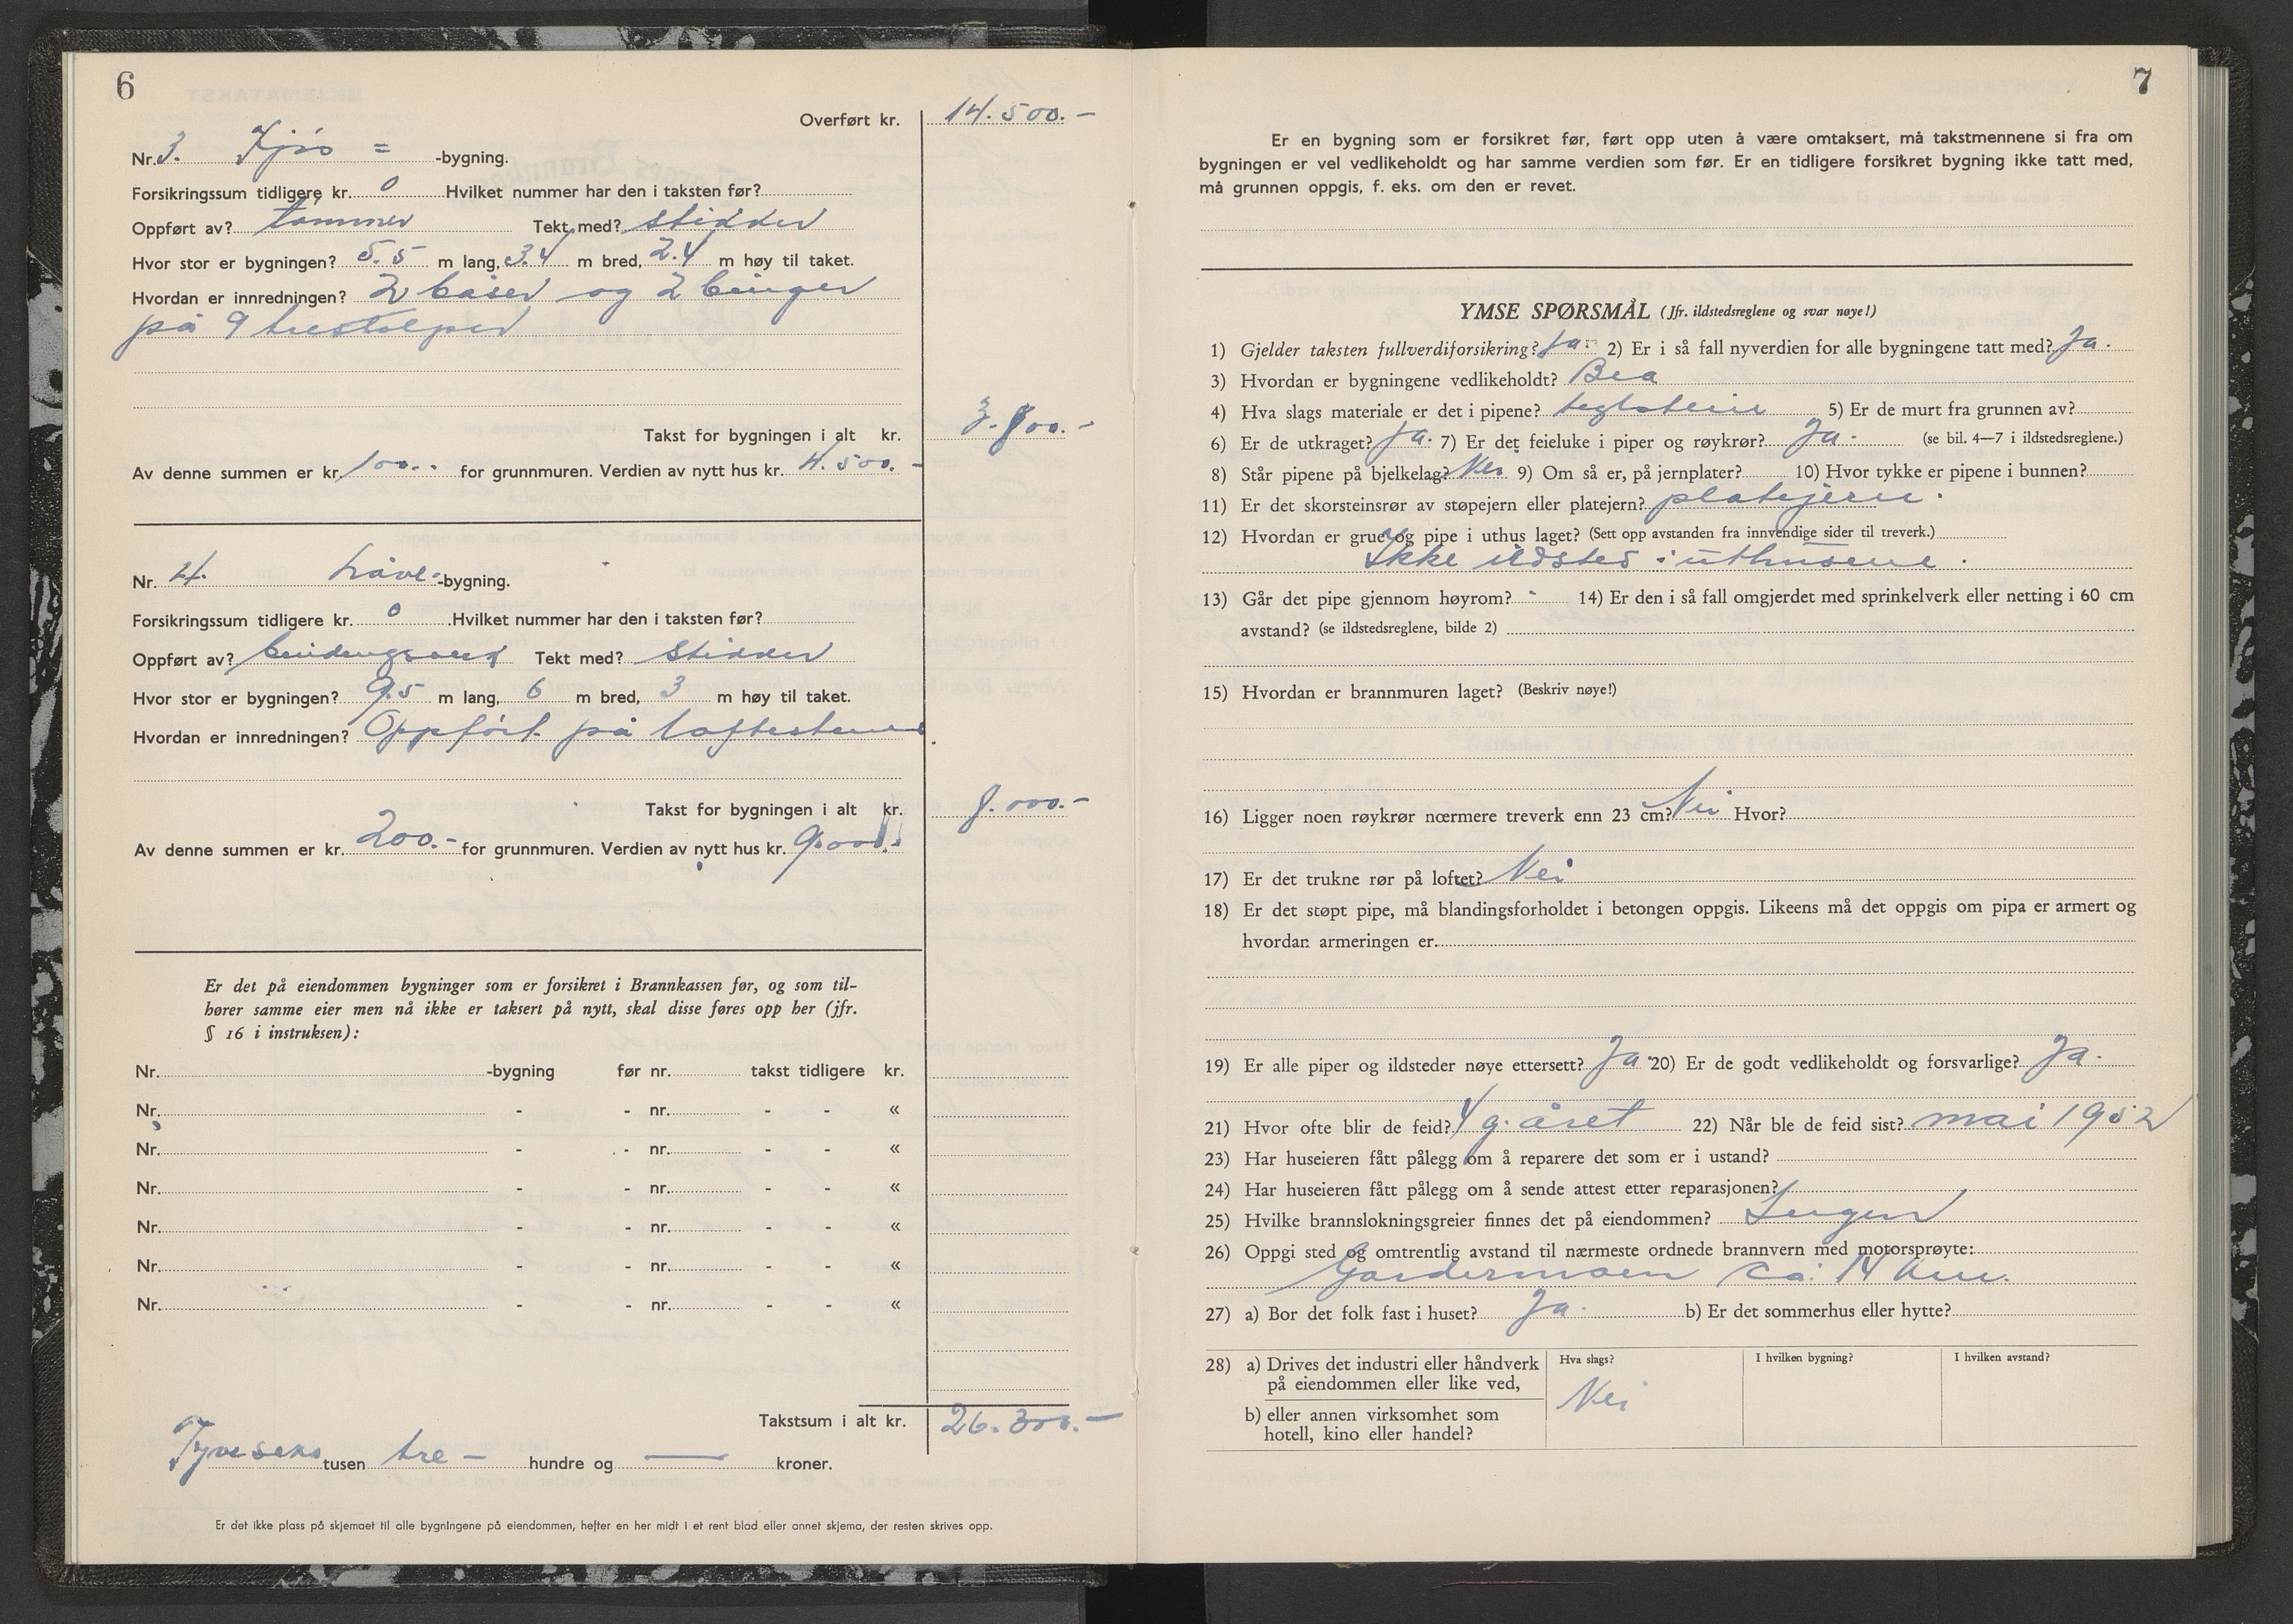 6
Overført kr. 14.500.-
Nr. 3. Fjøs = -bygning.
Forsikringssum tidligere kr. 0 Hvilket nummer har den i taksten før?
Oppført av? tømmer Tekt med? stikker
Hvor stor er bygningen? 5.5 m lang, 3.4 m bred, 2.4 m høy til taket.
Hvordan er innredningen? 2 båser og 2 binger
på 9 trestolper
3.800.-
Takst for bygningen i alt kr.
Av denne summen er kr. 100.- for grunnmuren. Verdien av nytt hus kr. 4.500.-
Nr. 4. Låve- -bygning.
Forsikringssum tidligere kr. 0 Hvilket nummer har den i taksten før?
Oppført av? bindingsverk Tekt med? stikker
Hvor stor er bygningen? 9.5 m lang, 6 m bred, 3 m høy til taket.
Hvordan er innredningen? Oppført på
Takst for bygningen i alt kr. 8.000.-
Av denne summen er kr. 200.- for grunnmuren. Verdien av nytt hus kr. 9.000.-
Er det på eiendommen bygninger som er forsikret i Brannkassen før, og som til-
hører samme eier men nå ikke er taksert på nytt, skal disse føres opp her (jfr.
§ 16 i instruksen):
Nr. -bygning før nr. takst tidligere kr.
Nr. - - nr. - - «
Nr. - - nr. - - «
Nr. - - nr. - - «
Nr. - - nr. - - «
Nr. - - nr. - - «
Nr. - - nr. - - «
Takstsum i alt kr. 26.300.-
Tyveseks tusen tre - hundre og — kroner.
Er det ikke plass på skjemaet til alle bygningene på eiendommen, hefter en her midt i et rent blad eller annet skjema, der resten skrives opp.
7
Er en bygning som er forsikret før, ført opp uten å være omtaksert, må takstmennene si fra om
bygningen er vel vedlikeholdt og har samme verdien som før. Er en tidligere forsikret bygning ikke tatt med,
må grunnen oppgis, f. eks. om den er revet.
YMSE SPØRSMÅL (Jfr. ildstedsreglene og svar nøye!)
1) Gjelder taksten fullverdiforsikring? Ja. 2) Er i så fall nyverdien for alle bygningene tatt med? Ja.
3) Hvordan er bygningene vedlikeholdt? Bra
4) Hva slags materiale er det i pipene? teglstein 5) Er de murt fra grunnen av?
6) Er de utkraget? Ja. 7) Er det feieluke i piper og røykrør? Ja. (se bil. 4—7 i ildstedsreglene.)
8) Står pipene på bjelkelag? Nei 9) Om så er, på jernplater? 10) Hvor tykke er pipene i bunnen?
11) Er det skorsteinsrør av støpejern eller platejern? platejern.
12) Hvordan er grue og pipe i uthus laget? (Sett opp avstanden fra innvendige sider til treverk.)
Ikke ildsted i uthusene.
13) Går det pipe gjennom høyrom? - 14) Er den i så fall omgjerdet med sprinkelverk eller netting i 60 cm
avstand? (se ildstedsreglene, bilde 2)
15) Hvordan er brannmuren laget? (Beskriv nøye!)
16) Ligger noen røykrør nærmere treverk enn 23 cm? Nei Hvor?
17) Er det trukne rør på loftet? Nei
18) Er det støpt pipe, må blandingsforholdet i betongen oppgis. Likeens må det oppgis om pipa er armert og
hvordan armeringen er.
19) Er alle piper og ildsteder nøye ettersett? Ja 20) Er de godt vedlikeholdt og forsvarlige? Ja.
21) Hvor ofte blir de feid? 4 g. året 22) Når ble de feid sist? mai 1952
23) Har huseieren fått pålegg om å reparere det som er i ustand?
24) Har huseieren fått pålegg om å sende attest etter reparasjonen?
25) Hvilke brannslokningsgreier finnes det på eiendommen?
26) Oppgi sted og omtrentlig avstand til nærmeste ordnede brannvern med motorsprøyte:
Gardermoen ca. 14 km.
27) a) Bor det folk fast i huset? Ja. b) Er det sommerhus eller hytte?
28) a) Drives det industri eller håndverk Hva slags? I hvilken bygning? I hvilken avstand?
på eiendommen eller like ved,
Nei
b) eller annen virksomhet som
hotell, kino eller handel?